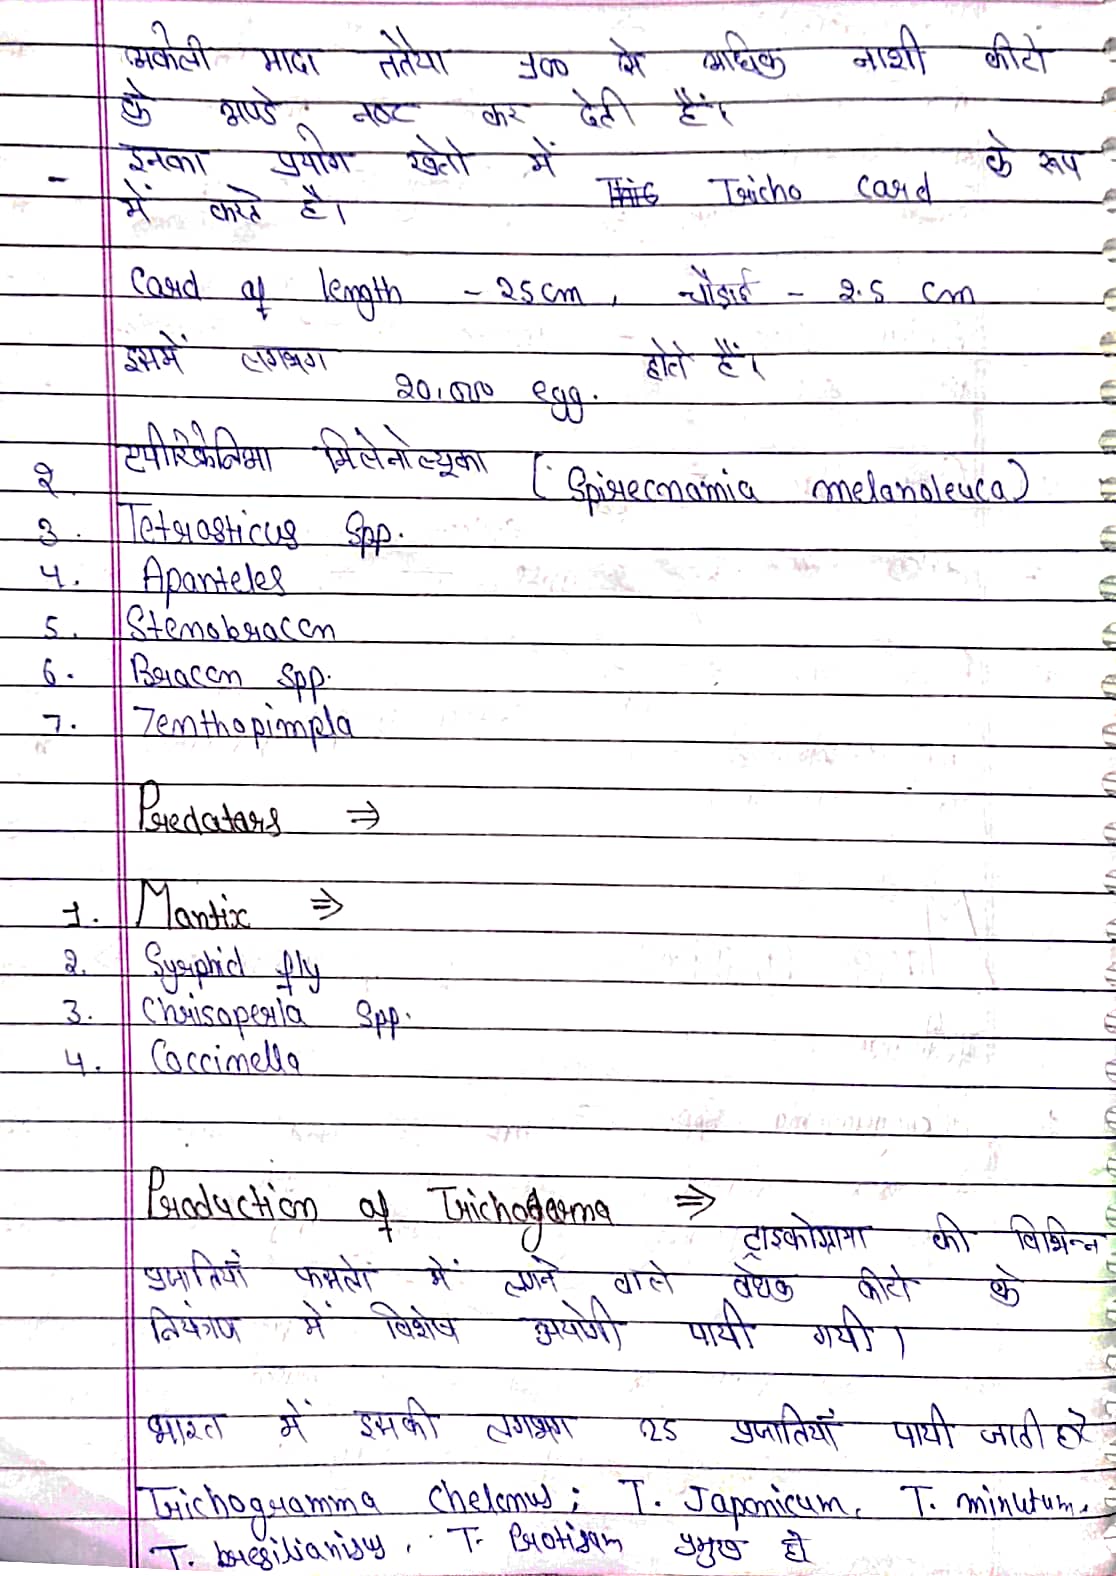 अकेली मादा ततैया 100 से अधिक नाशी कीटों
के अण्डे नष्ट कर देती हैं।
- इनका प्रयोग खेतो में Tricho Card के रूप
में करते है।
Card of length - 25 cm, चौड़ाई - 2.5 cm
इसमें लगभग 20,000 egg. होते हैं।
2. एपीरिकेनिमा मिलेनोल्यूका (Spirecnamia melanoleuca)
3. Tetrasticus Spp.
4. Apanteles
5. Stenobracon
6. Bracon Spp.
7. Zenthopimpla
Predators ⇒
1. Mantix ⇒
2. Syrphid fly
3. Chrisoperla Spp.
4. Coccinella
Production of Trichogerma ⇒ ट्राइकोग्रामा की विभिन्न
प्रजातियाँ फसलों में लगने वाले बेधक कीटो के
नियंत्रण में विशेष उपयोगी पायी गयी।
भारत में इसकी लगभग 25 प्रजातियाँ पायी जाती है
Trichogramma Chelonus; T. Japonicum, T. minutum,
T. bresilianisis, T. Protism प्रमुख है